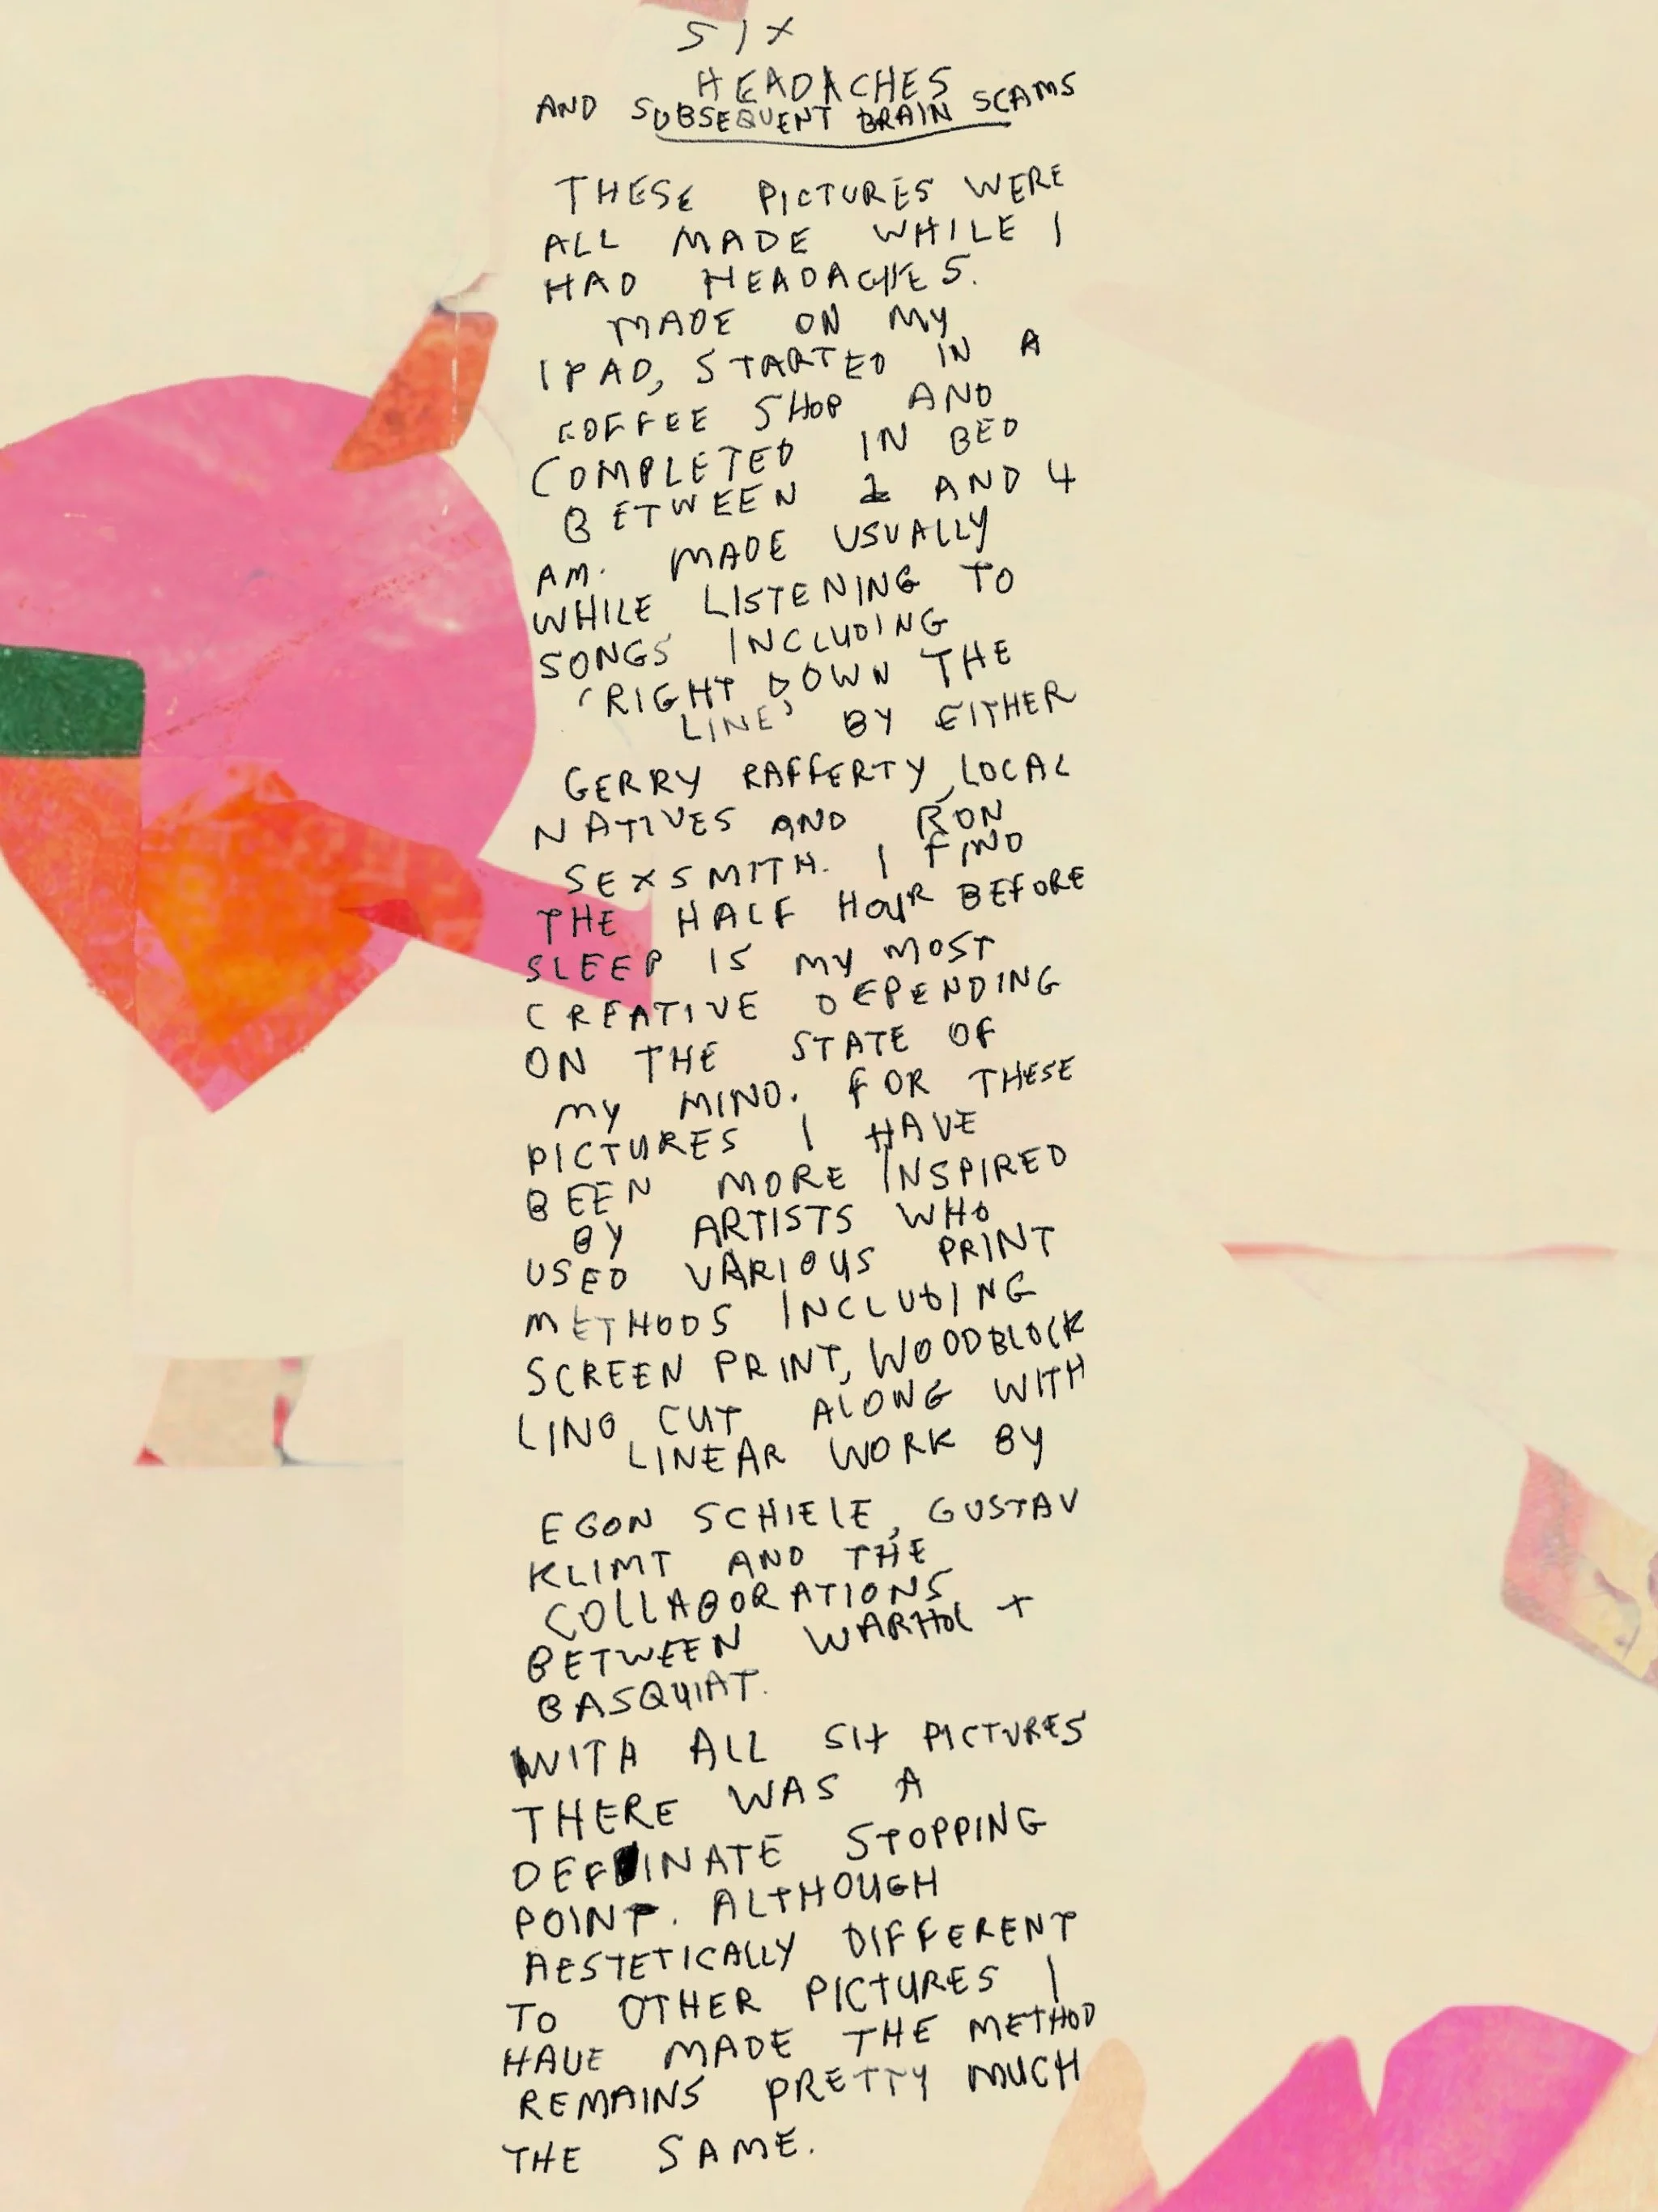 SIX
HEADACHES
AND SUBSEQUENT BRAIN SCAMS
THESE PICTURES WERE
ALL MADE WHILE I
HAD HEADACHES.
MADE ON MY
IPAD, STARTED IN A
COFFEE SHOP AND
COMPLETED IN BED
BETWEEN AND 4
AM. MADE USUALLY
WHILE LISTENING TO
SONGS INCLUDING
'RIGHT DOWN THE
LINE' BY EITHER
GERRY RAFFERTY, LOCAL
NATIVES AND RON
SEXSMITH. I FIND
THE HALF HOUR BEFORE
SLEEP IS MY MOST
CREATIVE DEPENDING
ON THE STATE OF
MY MIND. FOR THESE
PICTURES I HAVE
BEEN MORE INSPIRED
BY ARTISTS WHO
USED VARIOUS PRINT
METHODS INCLUDING
SCREEN PRINT, WOODBLOCK
LINO CUT ALONG WITH
LINEAR WORK BY
EGON SCHIELE, GUSTAV
KLIMT AND THE
COLLABORATIONS
BETWEEN WARHOL +
BASQUIAT.
WITH ALL SIX PICTURES
THERE WAS A
DEFINATE STOPPING
POINT. ALTHOUGH
AESTETICALLY DIFFERENT
TO OTHER PICTURES I
HAVE MADE THE METHOD
REMAINS PRETTY MUCH
THE SAME.